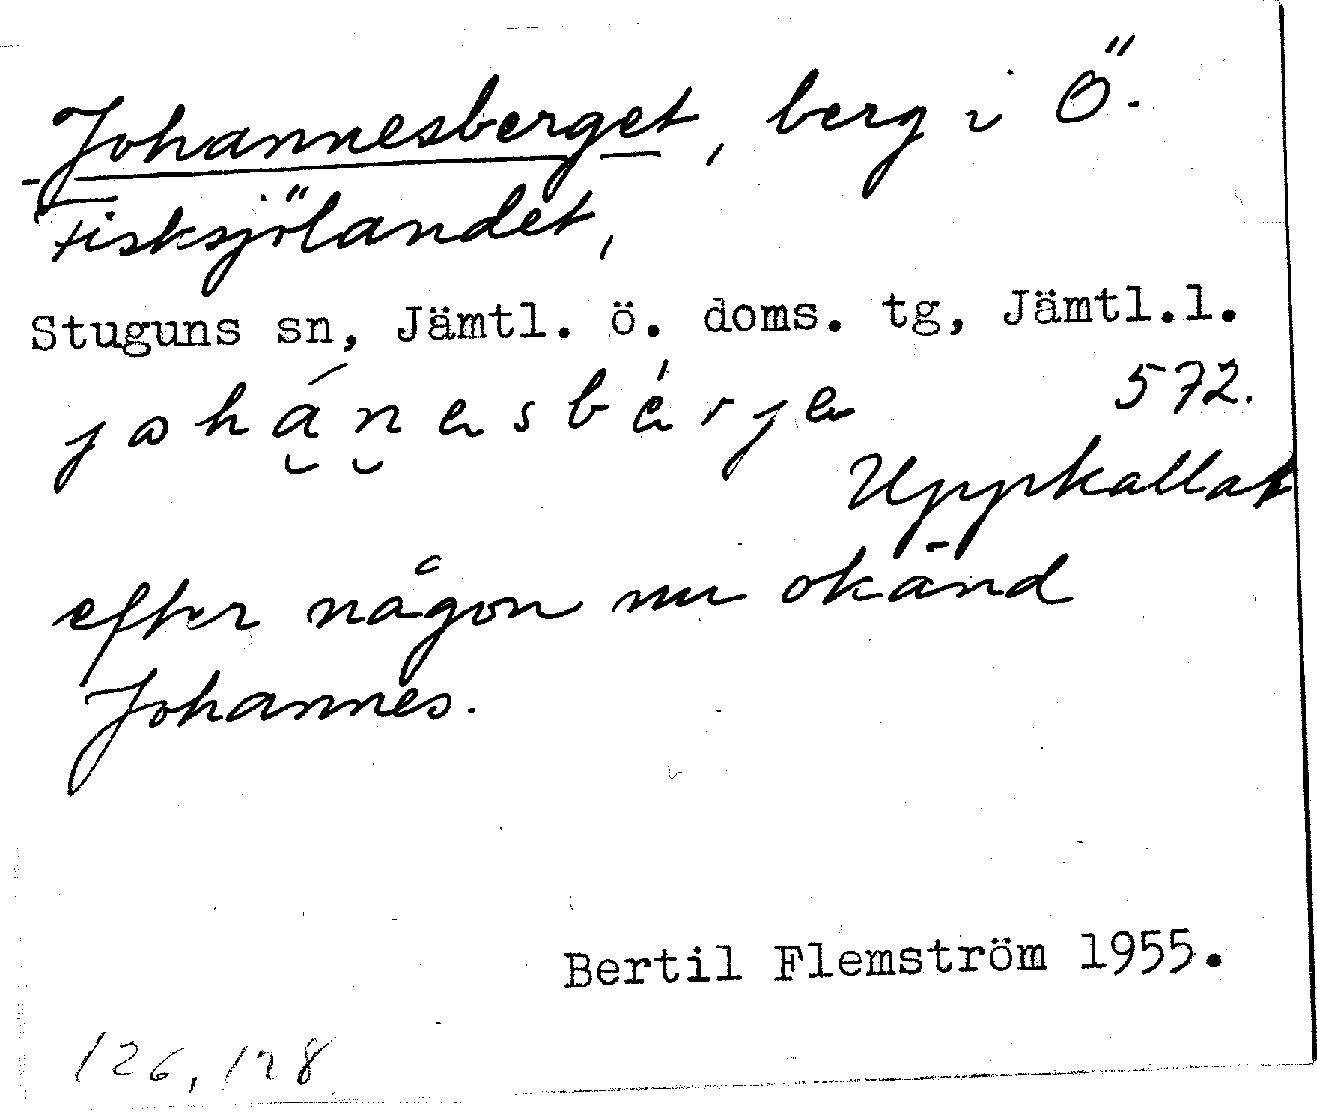 Johannesberget, berg i Ö.
Fisksjölandet,
Stuguns sn, Jämtl. ö. doms. tg, Jämtl.l.
572.
Uppkallat
efter någon nu okänd
Johannes.
Bertil Flemström 1955.
126, 128